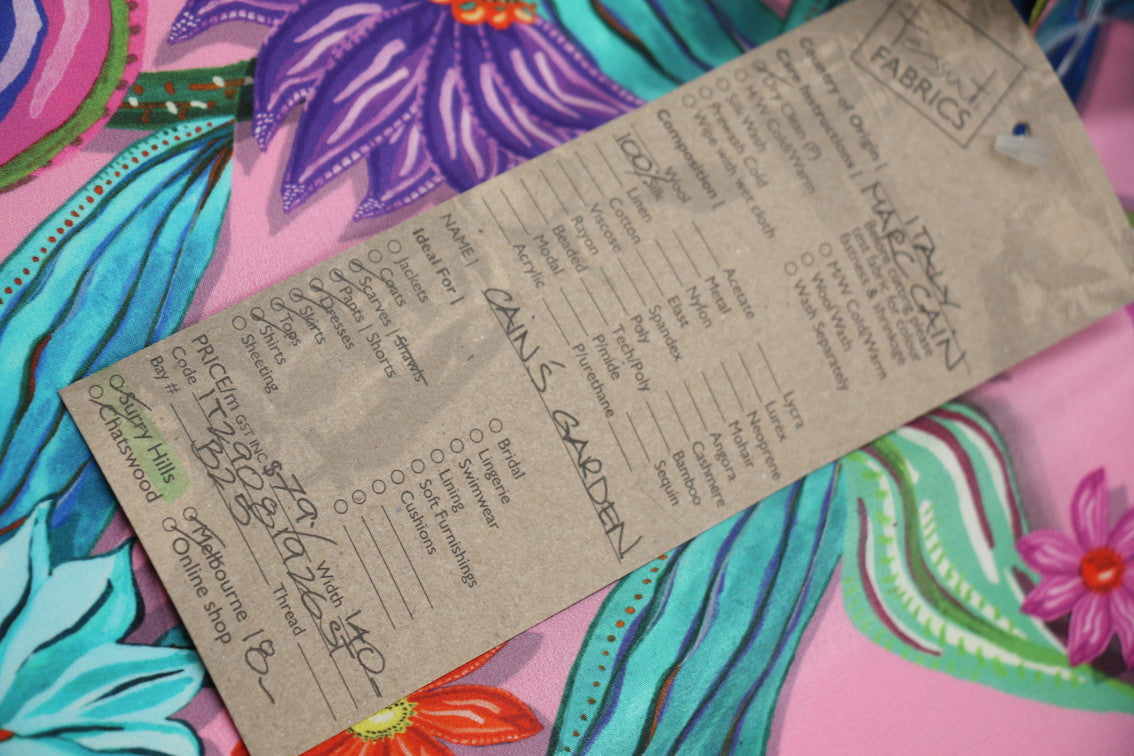 Tessuti
FABRICS
Country of Origin | ITALY
Care Instructions | MARC CAIN
Dry Clean (P)
H/W Cold/Warm
H. Wash
Prewash Cold
Wipe with wet cloth
Before cutting please
test fabric for colour
fastness & shrinkage
M/W Cold/Warm
Wool Wash
Wash Separately
Composition |
Wool
100% Silk
Linen
Cotton
Viscose
Rayon
Beaded
Modal
Acrylic
Acetate
Metal
Nylon
Elast
Spandex
Poly
Tech/Poly
P/mide
P/urethane
Lycra
Lurex
Neoprene
Mohair
Angora
Cashmere
Bamboo
Sequin
NAME | CAIN'S GARDEN
Ideal For |
Jackets
Coats
Scarves | Shawls
Pants | Shorts
Dresses
Skirts
Tops
Shirts
Sheeting
Bridal
Lingerie
Swimwear
Lining
Soft Furnishings
Cushions
PRICE/m GST INC $79.- Width 140
Code
Bay # B25 Thread
Surry Hills
Chatswood
Melbourne 18
Online shop